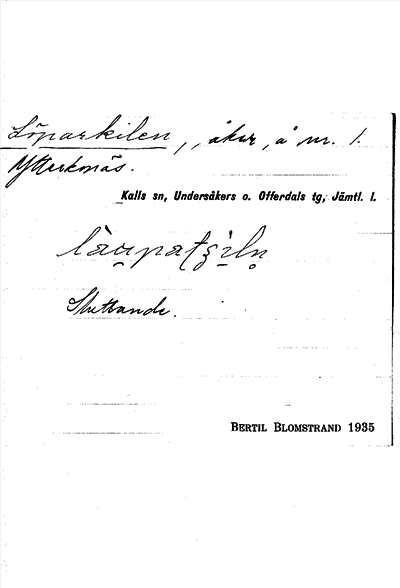 Löparkilen, åker, å nr. 1.
Ytterknäs.
Kalls sn, Undersåkers o. Offerdals tg, Jämtl. l.
Sluttande.
BERTIL BLOMSTRAND 1935